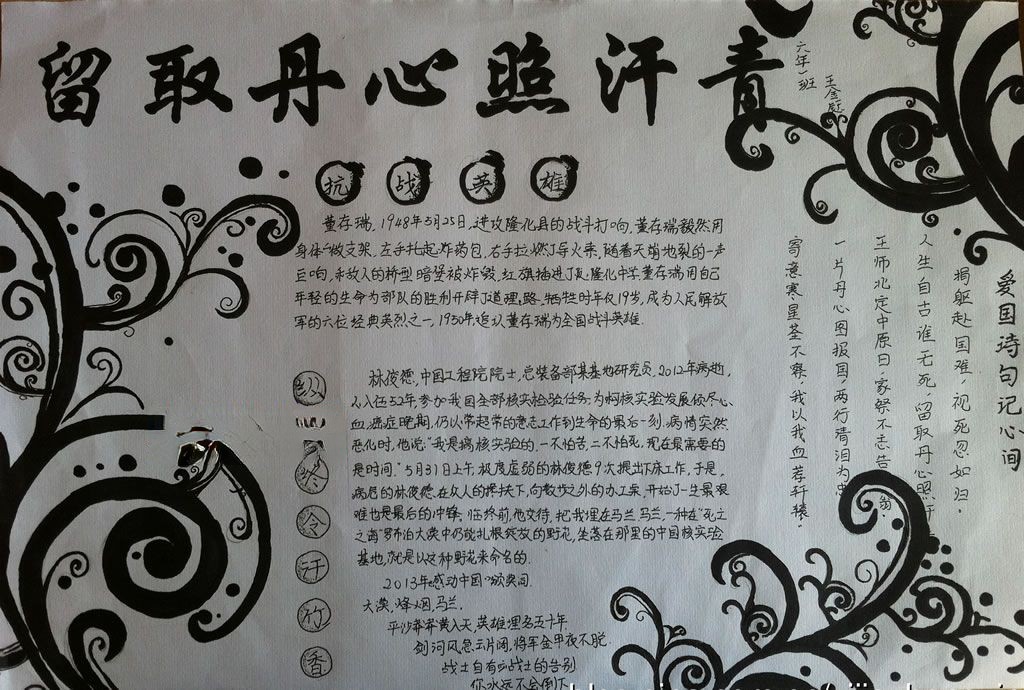 留取丹心照汗青
六年一班
王金
抗战英雄
董存瑞,1948年5月25日,进攻隆化县的战斗打响,董存瑞毅然用
身体做支架,左手托起炸药包,右手拉燃了导火索,随着天崩地裂的一声
巨响,和敌人的桥型暗堡被炸毁,红旗插进了隆化中学,董存瑞用自己
年轻的生命为部队的胜利开辟了道理路,牺牲时年仅19岁,成为人民解放
军的六位经典英烈之一,1950年追认董存瑞为全国战斗英雄.
纵
终
令
汗
竹
香
林俊德,中国工程院院士,总装备部某基地研究员,2012年病逝,
入伍52年,参加我国全部核实检验任务,为
血,癌症晚期,仍以常起常的意志工作到生命的最后一刻.病情突然
恶化时,他说:"我是病核实验的,一不怕苦,二不怕死,现在最需要的
是时间."5月31日上午,极度虚弱的林俊德9次提出下床工作,于是,
病危的林俊德,在众人的搀扶下,向数步之外的办工桌,开始了一生最艰
难也是最后的冲锋,临终前,他交待,把我埋在马兰.马兰,一种在"死亡
之海"罗布泊大漠中仍能扎根绽放的野花,坐落在那里的中国核实验
基地,就是以这种野花来命名的.
2013年感动中国颁奖词.
大漠,烽烟,马兰.
平沙莽莽黄入天,英雄埋名五十年
剑河风急云片阔,将军金甲夜不脱.
战士自有战士的告别
你永远不会倒下
爱国诗句记心间
捐躯赴国难,视死忽如归.
人生自古谁无死,留取丹心照汗
王师北定中原日,家祭不忘告 翁
一片丹心图报国,两行清泪为忠
寄意寒星荃不察,我以我血荐轩辕.